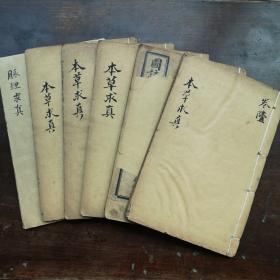 脉理求真
本草求真
本草求真
本草求真
本草求真